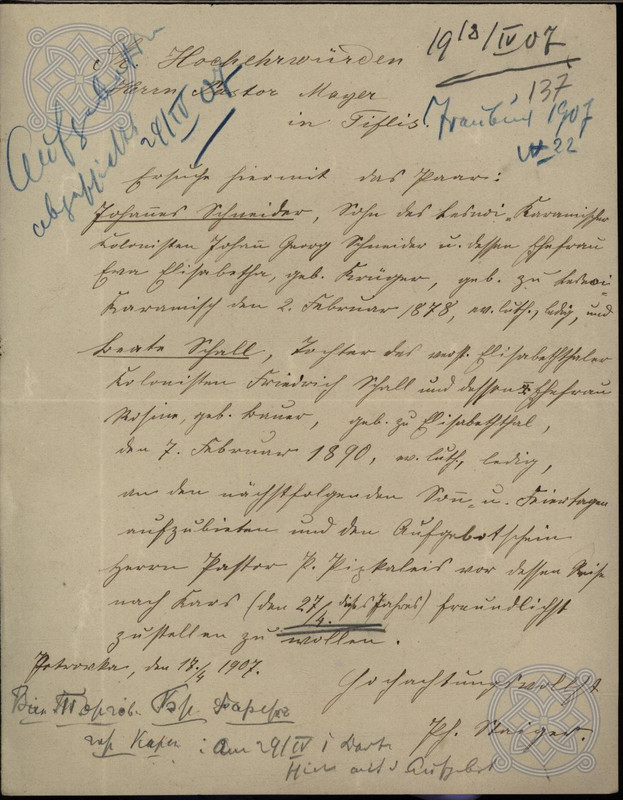 Sr. Hochehrwürden
Herrn Pastor Mayer
in Tiflis.
19 18/IV 07
137
Traubuch 1907
№ 22
Aufgeboten
abgeschickt 24/IV 07
Ersuche hiermit das Paar:
Johannes Schneider, Sohn des Lesnoi-Karamischer
Kolonisten Johann Georg Schneider u. dessen Ehefrau
Ewa Elisabetha, geb. Krüger, geb. zu Lesnoi-
Karamisch den 2. Februar 1878, ev. luth., ledig, und
Beate Schall, Tochter des verst. Elisabeththaler
Kolonisten Friedrich Schall und dessen II Ehefrau
Rosine, geb. Bauer, geb. zu Elisabeththal,
den 7. Februar 1890, ev. luth., ledig,
an den nächstfolgenden Sonn- u. Feiertagen
aufzubieten und den Aufgebotschein
Herrn Pastor P. vor dessen Reise
nach Kars (den 27/4. dieses Jahres) freundlichst
zustellen zu wollen.
Petrovka, den 17./4 1907.
Hochachtungsvollst
Ph. Staiger.
Am 29/IV